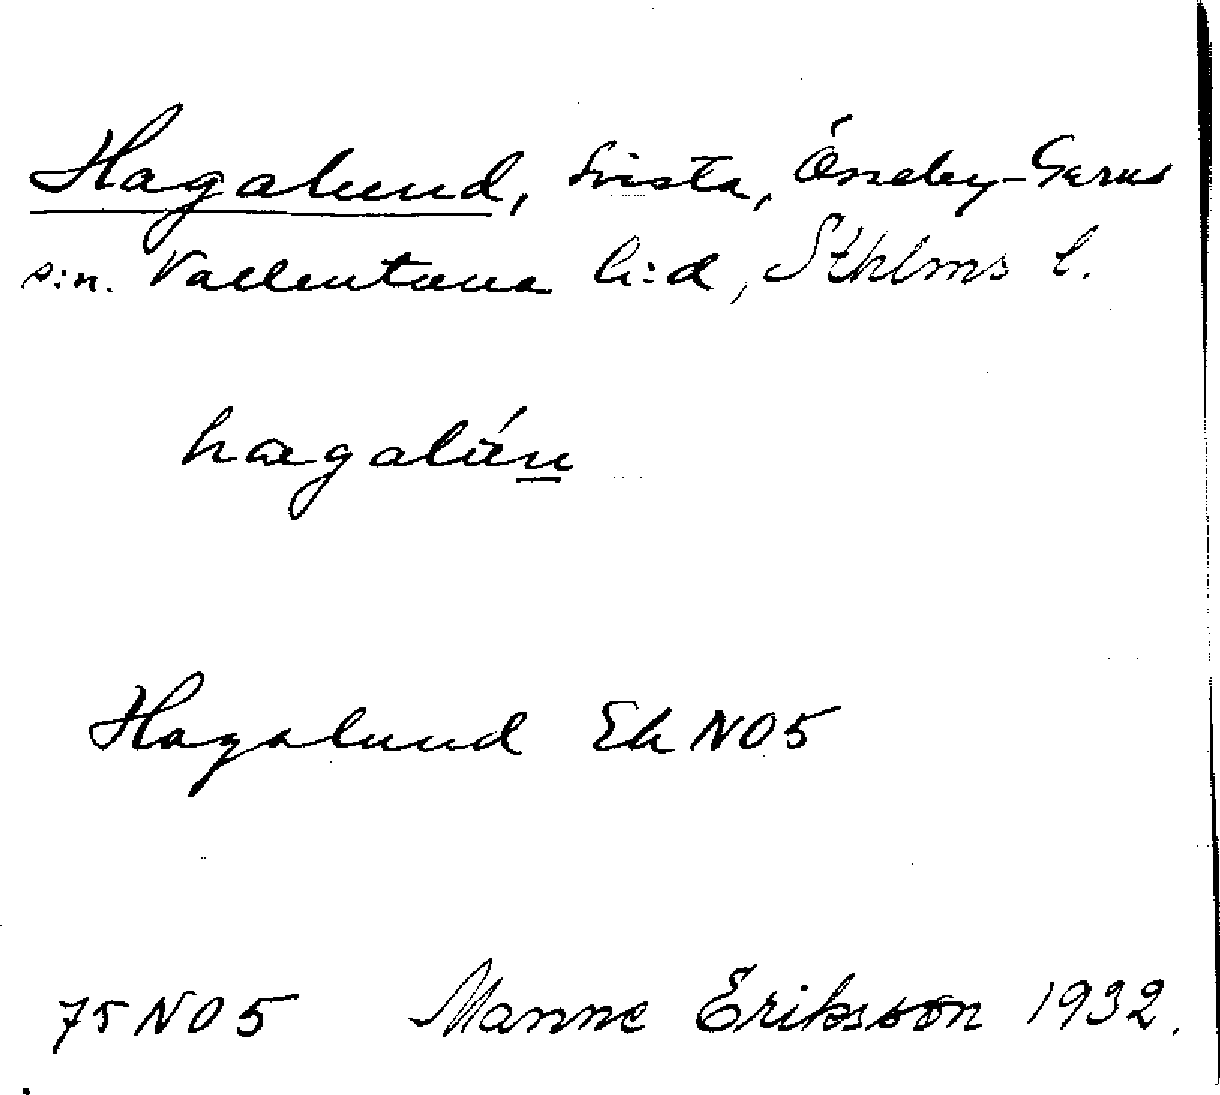 Hagalund, Svista, Össeby-Garns
s:n. Vallentuna h:d, Sthlms l.
hagalún
Hagalund Ek NO5
75 NO5 Manne Eriksson 1932.